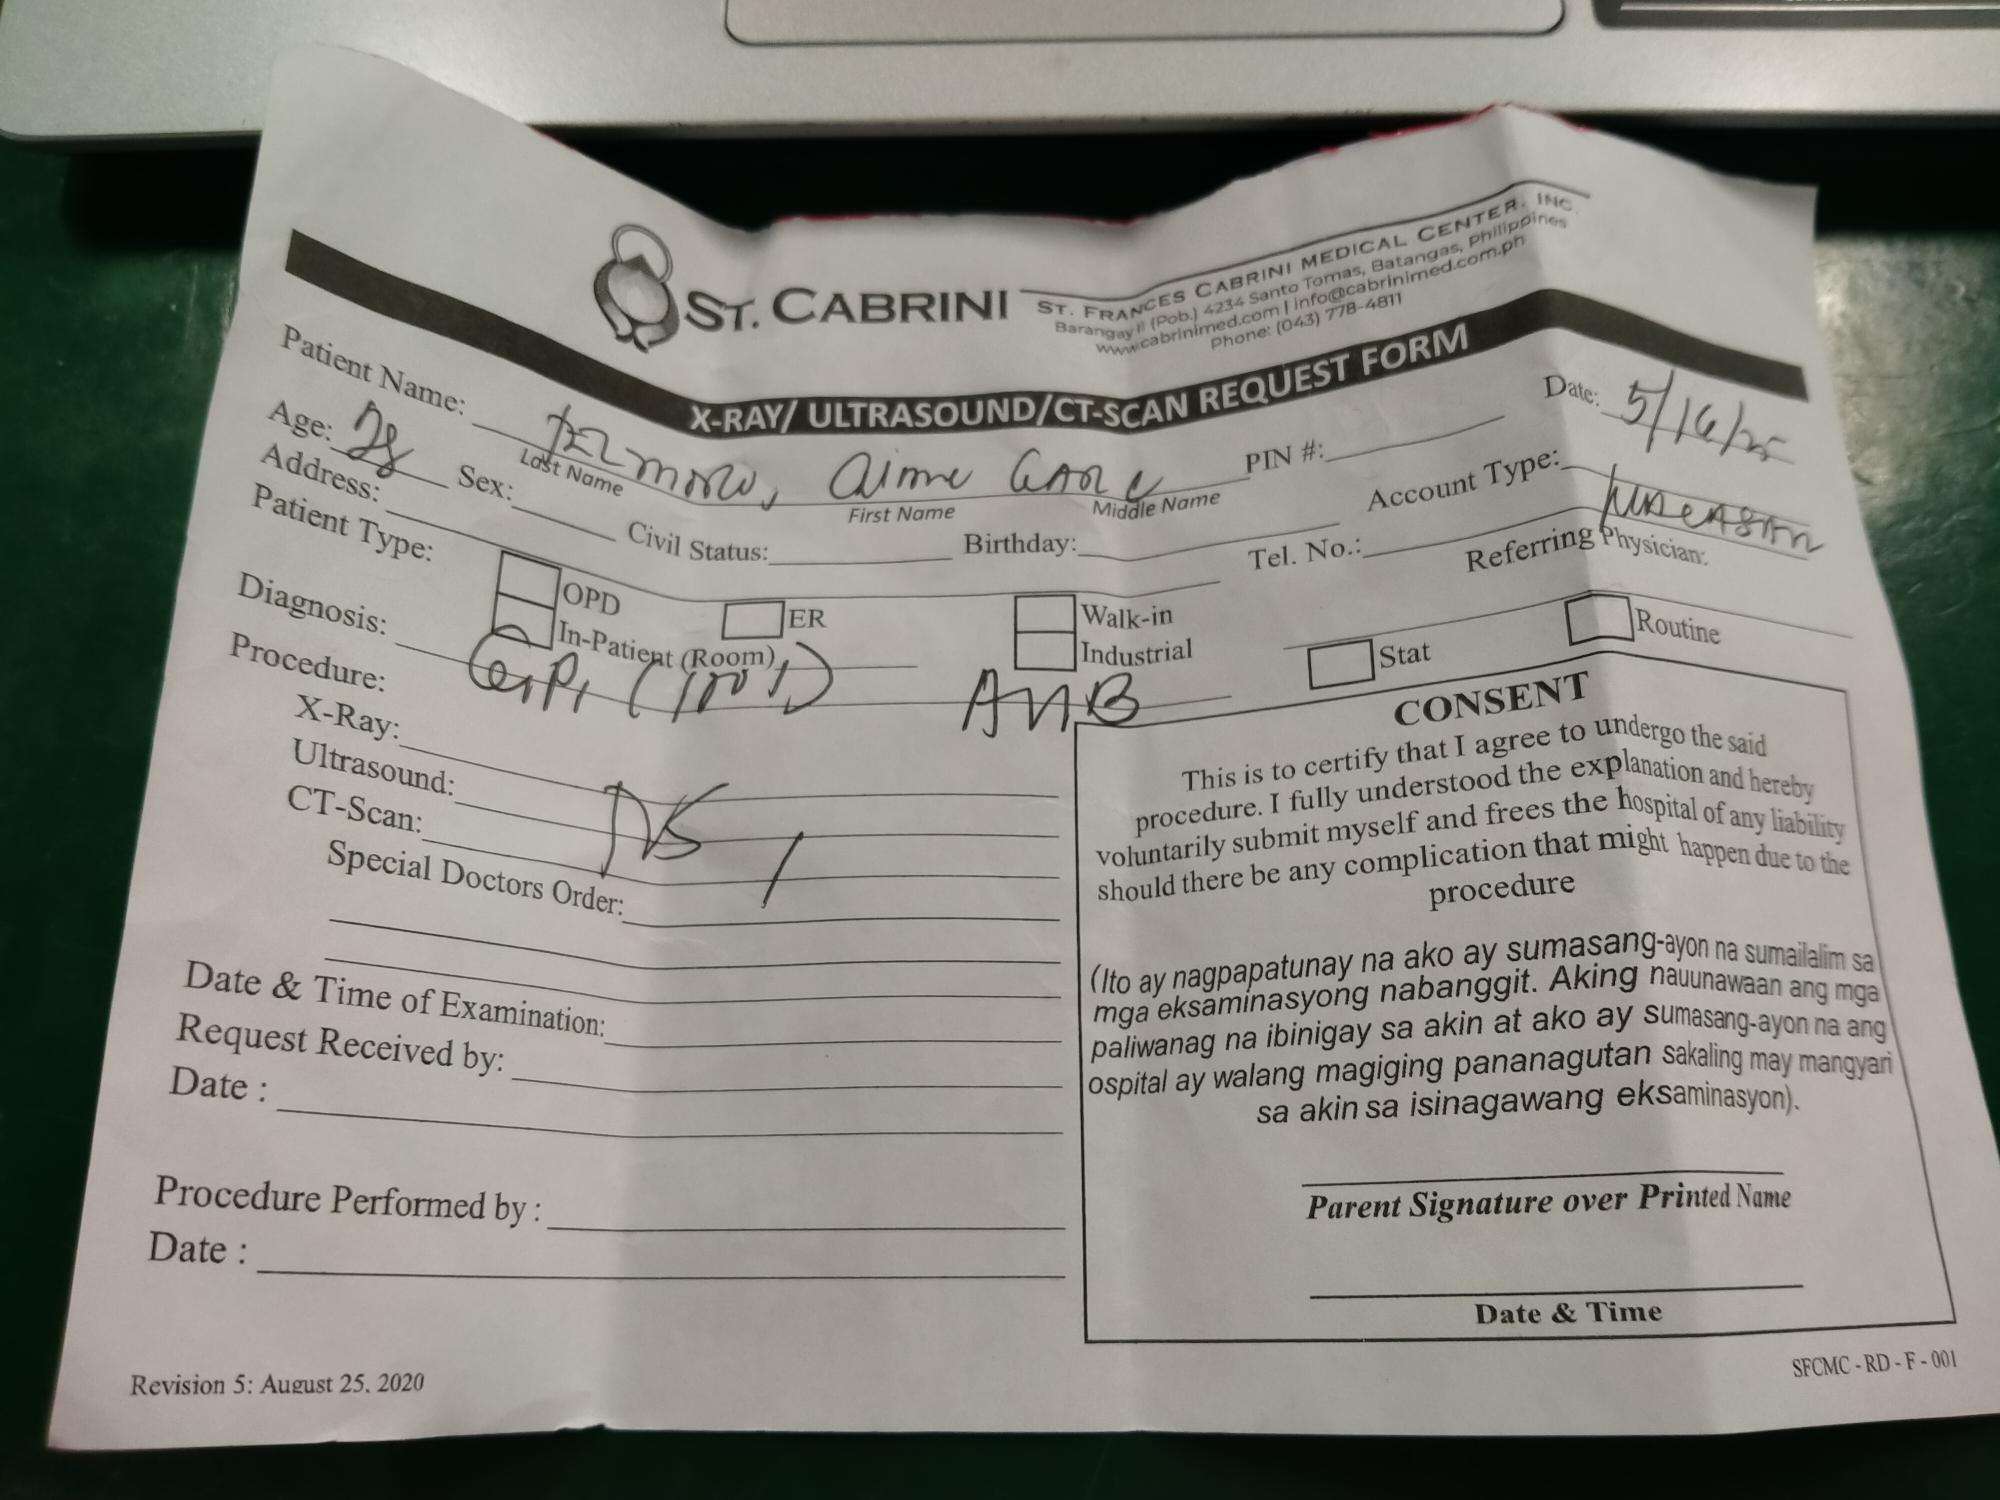 ST. CABRINI
ST. FRANCES CABRINI MEDICAL CENTER, INC.
Barangay II (Pob.) 4234 Santo Tomas, Batangas, Philippines
www.cabrinimed.com | info@cabrinimed.com.ph
Phone: (043) 778-4811
X-RAY/ ULTRASOUND/CT-SCAN REQUEST FORM
Date: 5/16/25
Patient Name:
Last Name First Name Middle Name
PIN #:
Account Type:
Age: 28 Sex: Civil Status: Birthday: Tel. No.: Referring Physician:
Address:
Patient Type: OPD ER Walk-in
In-Patient (Room) Industrial Stat Routine
Diagnosis:
Procedure:
X-Ray:
Ultrasound:
CT-Scan:
Special Doctors Order:
Date & Time of Examination:
Request Received by:
Date :
Procedure Performed by :
Date :
CONSENT
This is to certify that I agree to undergo the said
procedure. I fully understood the explanation and hereby
voluntarily submit myself and frees the hospital of any liability
should there be any complication that might happen due to the
procedure
(Ito ay nagpapatunay na ako ay sumasang-ayon na sumailalim sa
mga eksaminasyong nabanggit. Aking nauunawaan ang mga
paliwanag na ibinigay sa akin at ako ay sumasang-ayon na ang
ospital ay walang magiging pananagutan sakaling may mangyari
sa akin sa isinagawang eksaminasyon).
Parent Signature over Printed Name
Date & Time
Revision 5: August 25, 2020
SFCMC - RD - F - 001